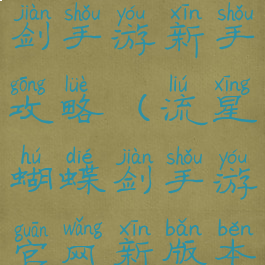 jiàn shǒu yóu xīn shǒu
剑手游新手
gōng lüè liú xīng
攻略（流星
hú dié jiàn shǒu yóu
蝴蝶剑手游
guān wǎng xīn bǎn běn
官网新版本